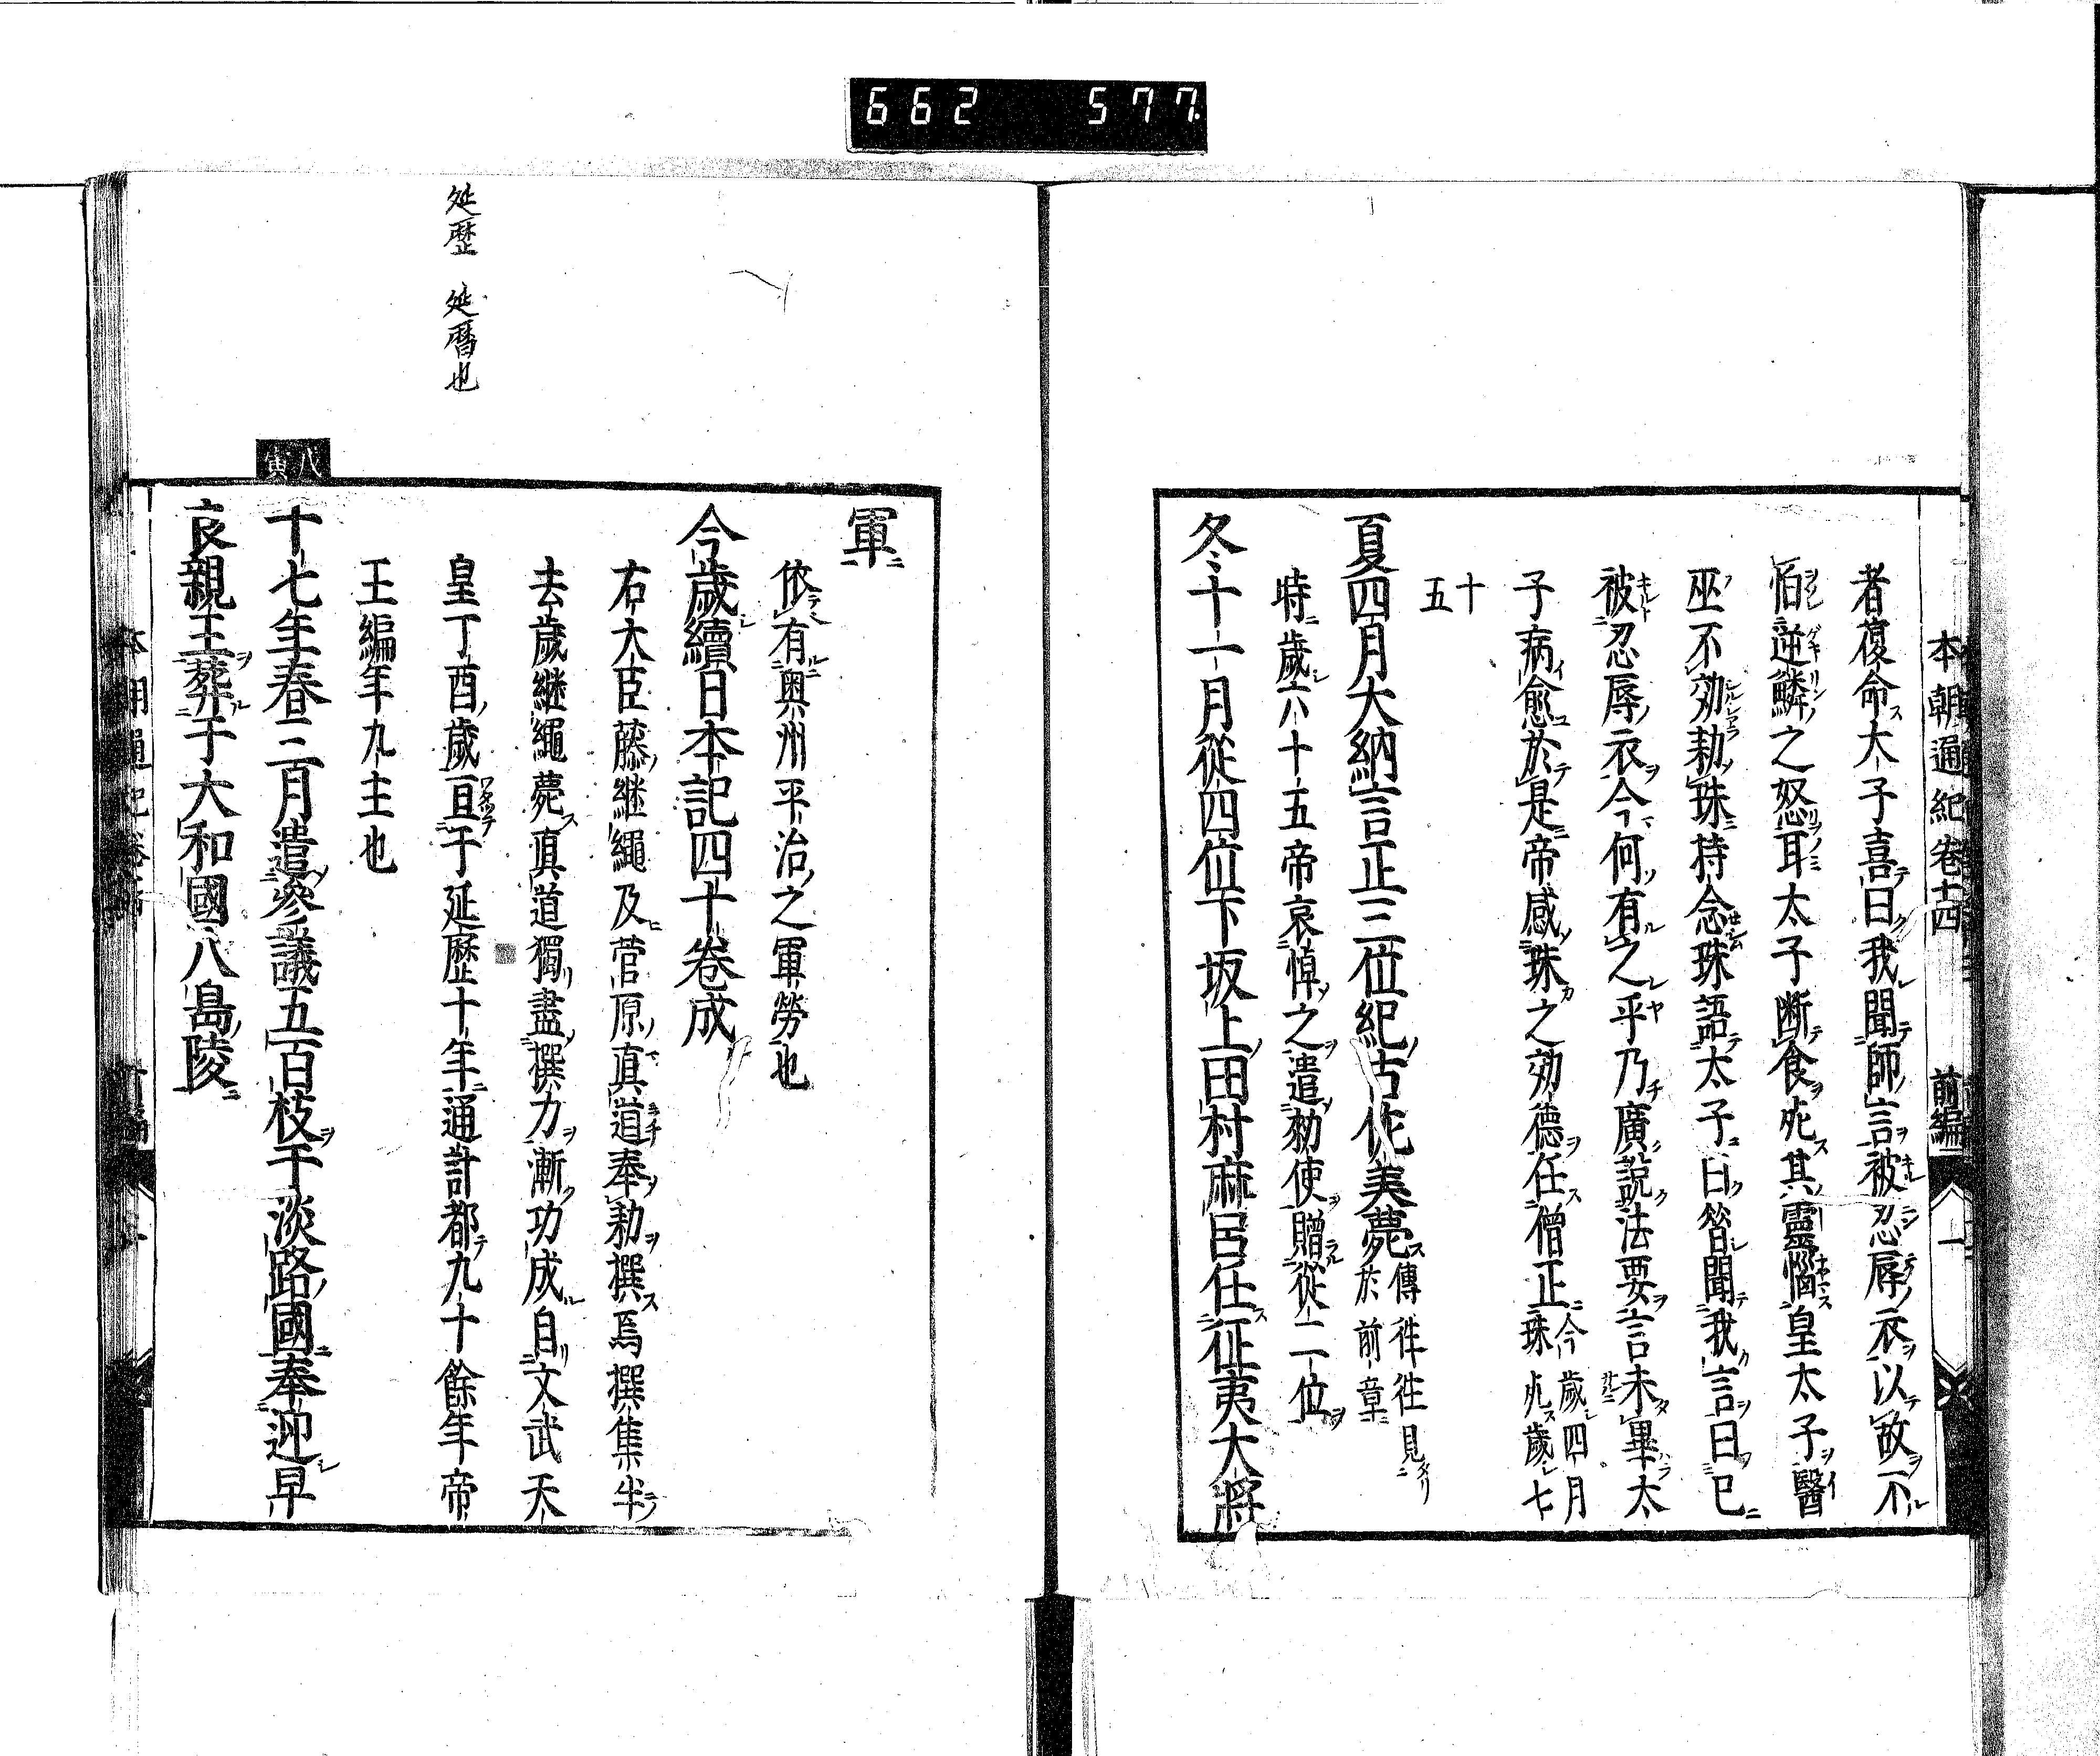 662 577
本朝通紀卷十四 前編 一
者復命太子喜曰我聞師言被忍辱衣以故不
怕逆鱗之怒耳太子斷食死其靈惱皇太子醫
巫不効勅珠持念珠語太子曰昝聞我言曰已
被忍辱衣今何有之乎乃廣説法要言未畢太
子病愈於是帝感珠之効德任僧正今歲四月珠死歲七
十五
夏四月大納言正三位紀古佐美薨傳徃徃見於前章
時歲六十五帝哀悼之遣勅使贈從二位
冬十一月從四位下坂上田村麻呂任征夷大將
軍
依有奥州平治之軍勞也
今歲續日本記四十卷成
右大臣藤継繩及菅原真道奉勅撰焉撰集半
去歲継繩薨真道獨盡撰力漸功成自文武天
皇丁酉歲亘于延歷十年通計都九十餘年帝
王編年九主也
延歷 延曆也
八寅
十七年春三月遣參議五百枝于淡路國奉迎早
良親王葬于大和國八島陵